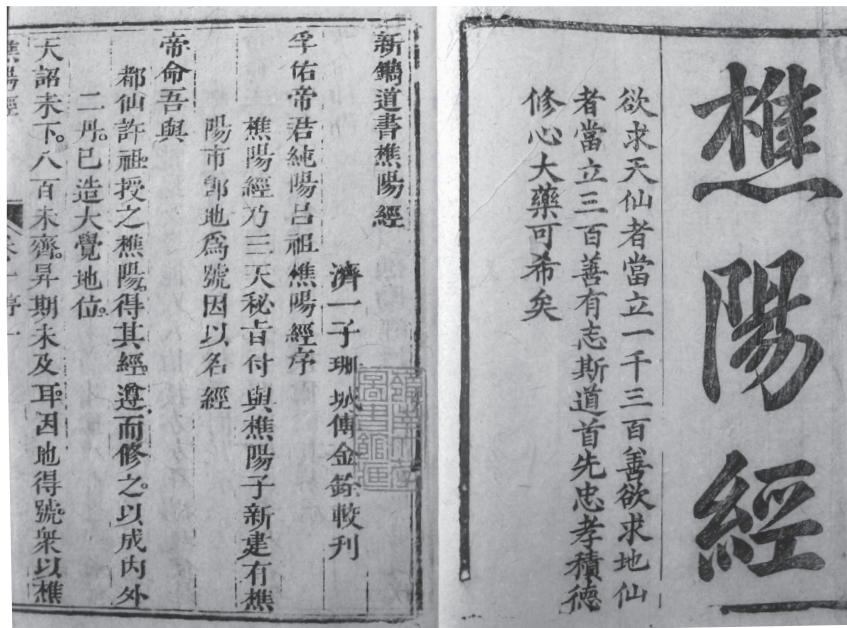 樵陽經
欲求天仙者當立一千三百善欲求地仙
者當立三百善有志斯道首先忠孝積德
修心大藥可希矣
新鐫道書樵陽經
濟一子珊城傅金銓較刊
孚佑帝君純陽呂祖樵陽經序
樵陽經乃三天秘旨付與樵陽子新建有樵
陽市卽地爲號因以名經
帝命吾與
都仙許祖授之樵陽。得其經。遵而修之。以成內外
二丹。已造大覺地位。
天詔未下。八百未齊。昇期未及耳。因地得號。衆以樵
樵陽經
卷一序一